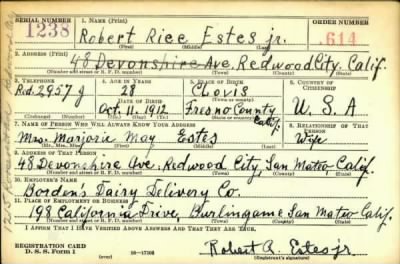 SERIAL NUMBER 1. NAME (Print) ORDER NUMBER
1238 Robert Rice Estes jr. 614
(First) (Middle) (Last)
2. ADDRESS (Print)
48 Devonshire Ave, Redwood City, Calif.
(Number and street or R. F. D. number) (Town) (County) (State)
3. TELEPHONE 4. AGE IN YEARS 5. PLACE OF BIRTH 6. COUNTRY OF CITIZENSHIP
Rd 2957 J 28 Clovis
DATE OF BIRTH (Town or county)
Oct. 11, 1912 Fresno County Calif. U. S. A
(Exchange) (Number) (Mo.) (Day) (Yr.) (State or country)
7. NAME OF PERSON WHO WILL ALWAYS KNOW YOUR ADDRESS 8. RELATIONSHIP OF THAT PERSON
Mrs. Marjorie May Estes Wife
(Mr., Mrs., Miss) (First) (Middle) (Last)
9. ADDRESS OF THAT PERSON
48 Devonshire Ave. Redwood City, San Mateo, Calif.
(Number and street or R. F. D. number) (Town) (County) (State)
10. EMPLOYER'S NAME
Borden's Dairy Delivery Co.
11. PLACE OF EMPLOYMENT OR BUSINESS
198 California Drive, Burlingame San Mateo Calif.
(Number and street or R. F. D. number) (Town) (County) (State)
I AFFIRM THAT I HAVE VERIFIED ABOVE ANSWERS AND THAT THEY ARE TRUE.
REGISTRATION CARD
D. S. S. Form 1 16—17105
Robert R. Estes jr
(Registrant's signature)